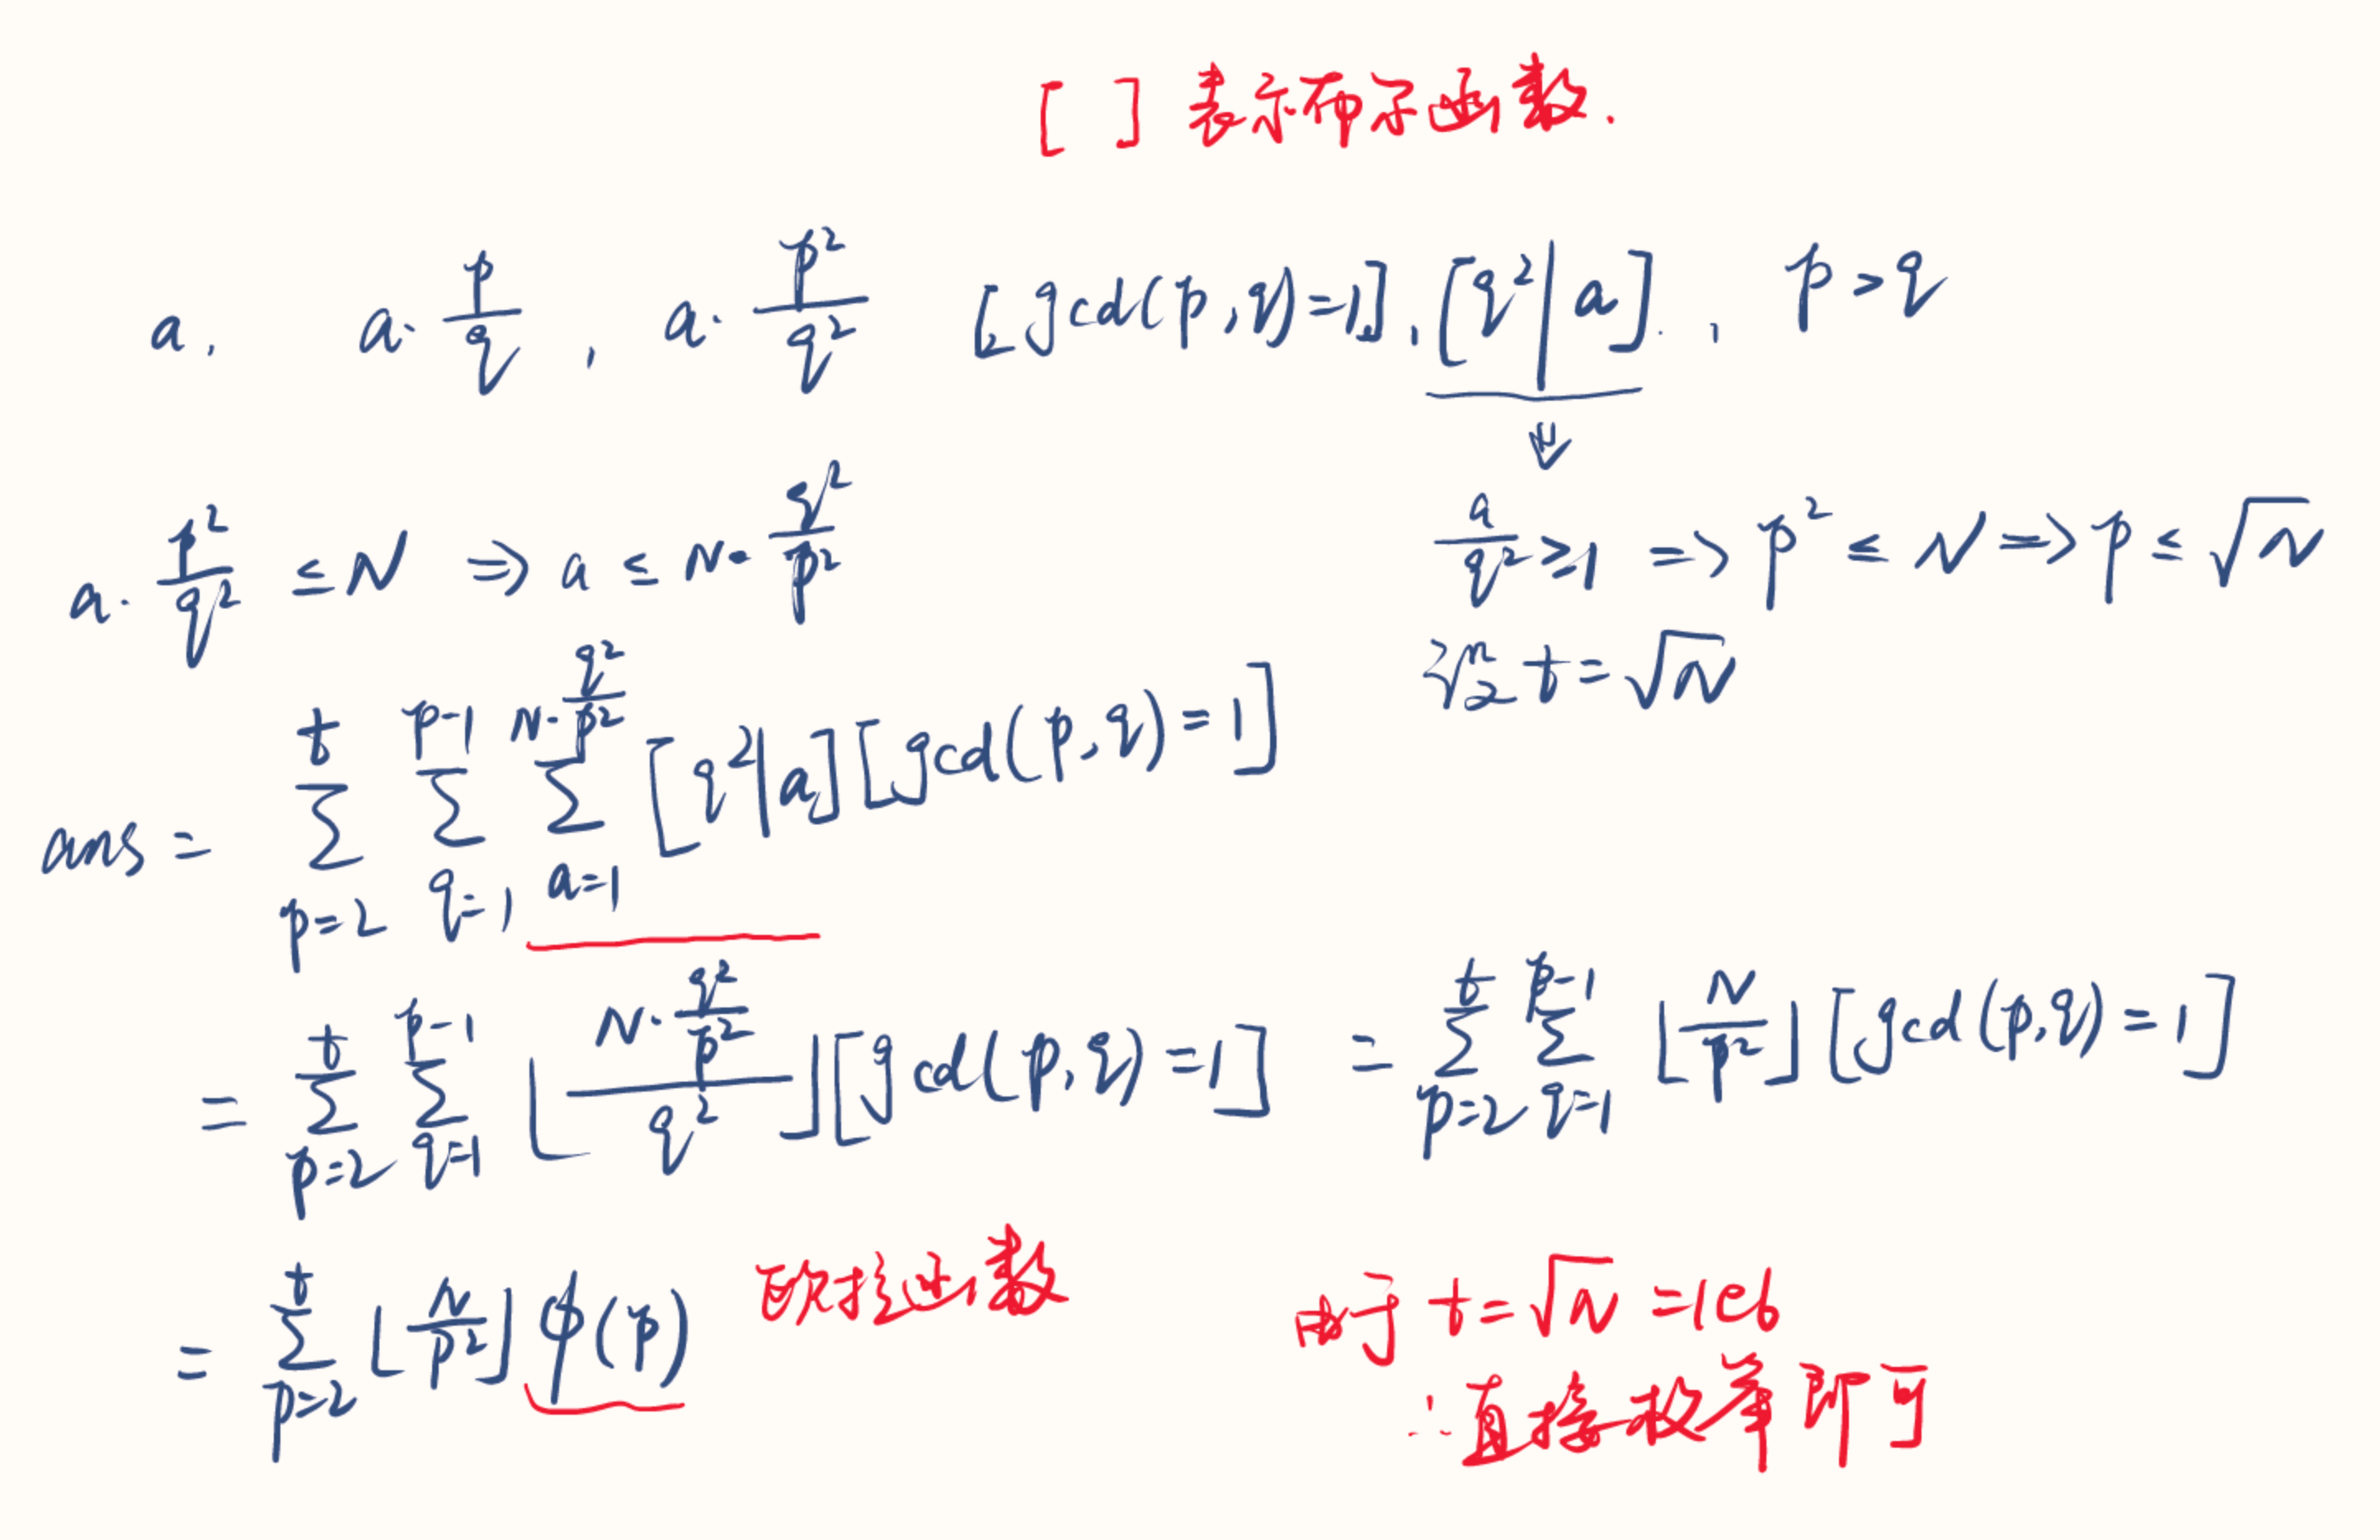 [ ] 表示布尔函数.
a, a·p/q, a·p²/q² [gcd(p,q)=1], [q²|a]., p>q
⇓
a·p²/q² ≤ N ⇒ a ≤ N·q²/p² a/q² ≥ 1 ⇒ p² ≤ N ⇒ p ≤ √N
t=√N
ans = ∑_{p=2}^{t} ∑_{q=1}^{p-1} ∑_{a=1}^{N·q²/p²} [q²|a][gcd(p,q)=1]
= ∑_{p=2}^{t} ∑_{q=1}^{p-1} ⌊(N·q²/p²)/q²⌋[gcd(p,q)=1] = ∑_{p=2}^{t} ∑_{q=1}^{p-1} ⌊N/p²⌋[gcd(p,q)=1]
= ∑_{p=2}^{t} ⌊N/p²⌋ φ(p) 欧拉函数 由于 t=√N=1e6
∴直接枚举即可